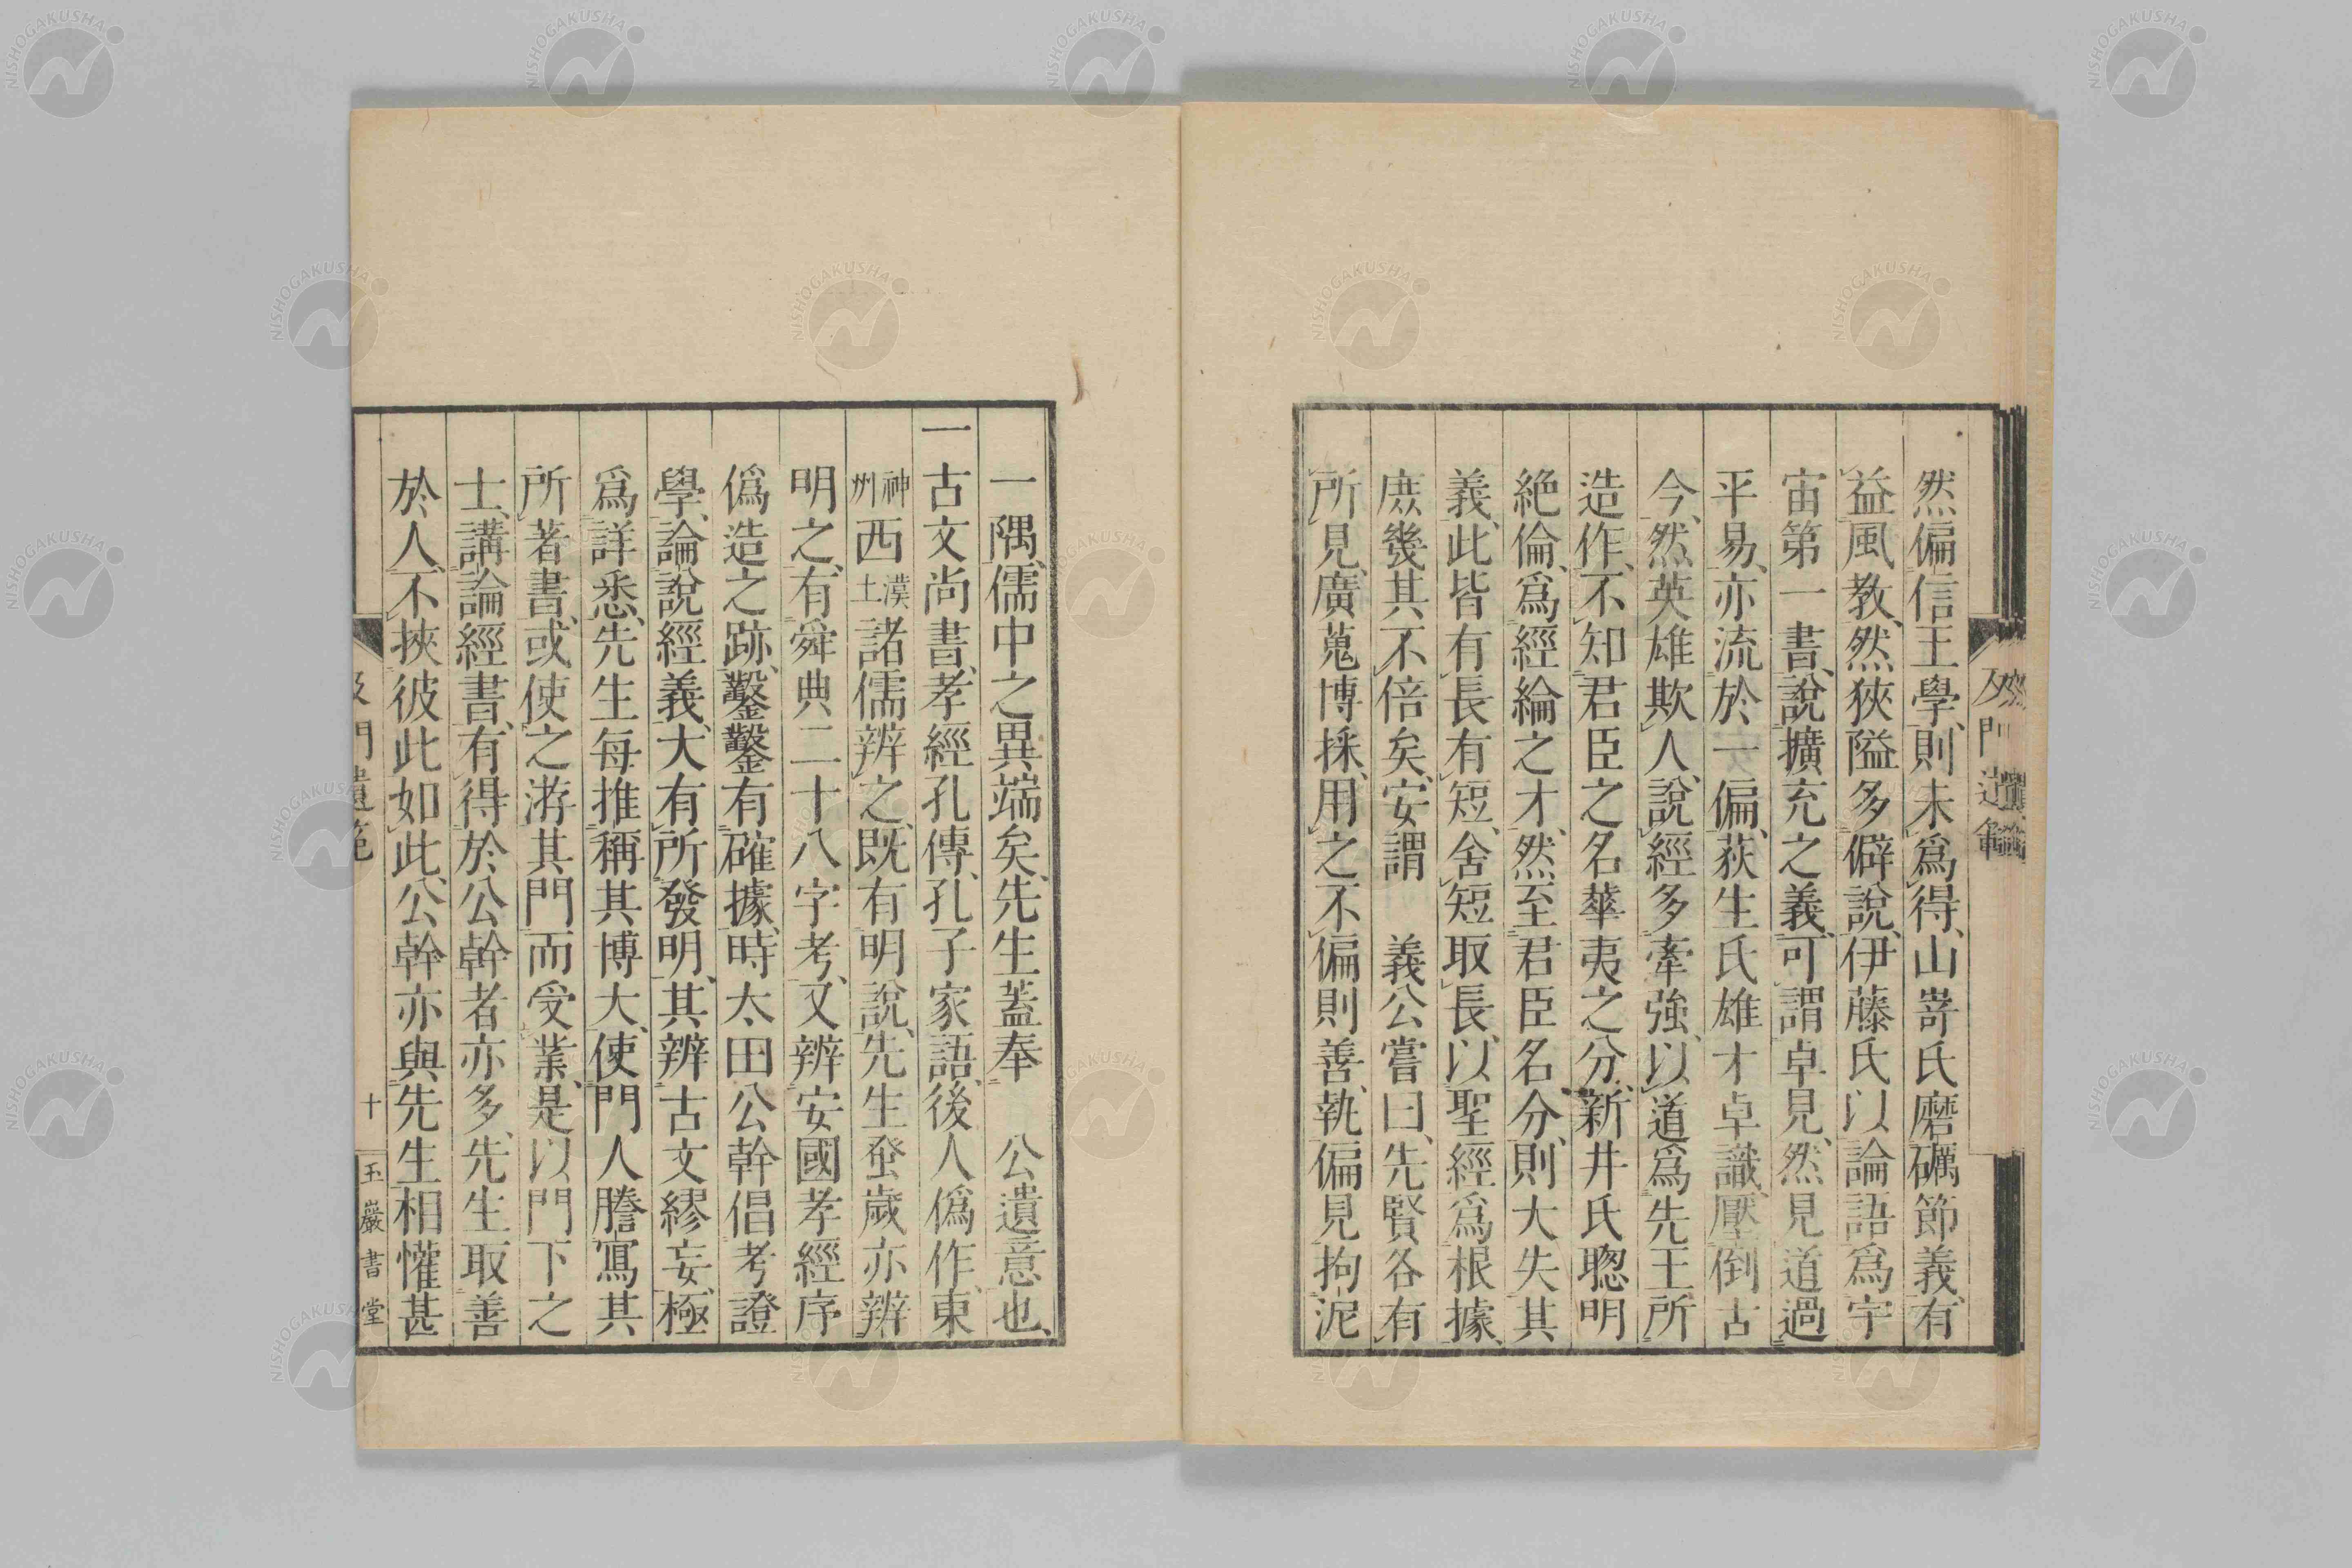 然偏信王學、則未爲得、山嵜氏磨礪節義、有
益風教、然狹隘多僻說、伊藤氏以論語爲宇
宙第一書、說擴充之義、可謂卓見、然見道過
平易、亦流於一偏、荻生氏雄才卓識、壓倒古
今、然英雄欺人、說經多牽強、以道爲先王所
造作、不知君臣之名華夷之分、新井氏聰明
絶倫、爲經綸之才、然至君臣名分、則大失其
義、此皆有長有短、舍短取長、以聖經爲根據、
庶幾其不倍矣、安謂　義公嘗曰、先賢各有
所見、廣蒐博採、用之不偏則善、執偏見拘泥
一隅、儒中之異端矣、先生蓋奉　公遺意也、
一古文尚書、孝經孔傳、孔子家語、後人僞作、東
神州西漢土諸儒辨之、既有明說、先生蚤歲亦辨
明之、有舜典二十八字考、又辨安國孝經序
僞造之跡、鑿鑿有確據、時太田公幹倡考證
學、論說經義、大有所發明、其辨古文繆妄、極
爲詳悉、先生每推稱其博大、使門人謄寫其
所著書、或使之游其門而受業、是以門下之
士、講論經書、有得於公幹者亦多、先生取善
於人、不挾彼此如此、公幹亦與先生相懽甚
及門遺範
十
玉巖書堂
NISHOGAKUSHA